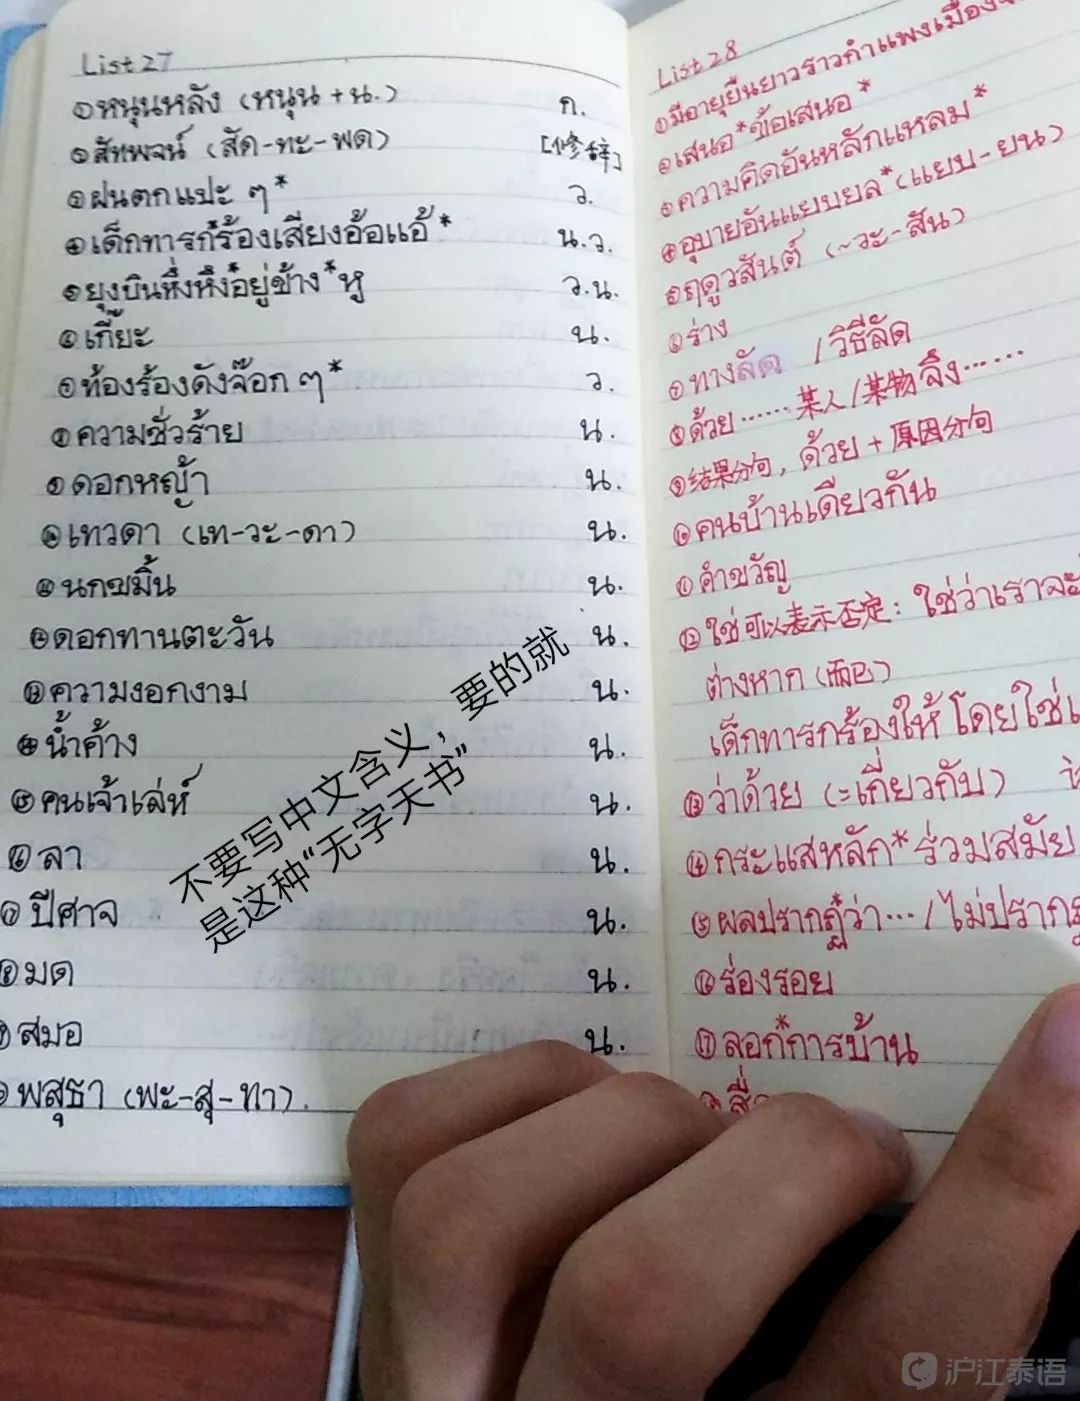 List 27
①หนุนหลัง (หนุน+น.) ก.
②สัทพจน์ (สัด-ทะ-พด) [修辞]
③ฝนตกแปะ ๆ* ว.
④เด็กทารกร้อง*เสียงอ้อแอ้* น.ว.
⑤ยุงบินหึ่งหึ่ง*อยู่ข้าง*หู ว.น.
⑥เกี๊ยะ น.
⑦ท้องร้องดังจ๊อก ๆ* ว.
⑧ความชั่วร้าย น.
⑨ดอกหญ้า น.
⑩เทวดา (เท-วะ-ดา) น.
⑪นกขมิ้น น.
⑫ดอกทานตะวัน น.
⑬ความงอกงาม น.
⑭น้ำค้าง น.
⑮คนเจ้าเล่ห์ น.
⑯ลา น.
⑰ปีศาจ น.
⑱มด น.
⑲สมอ น.
พสุธา (พะ-สุ-ทา).
不要写中文含义，要的就
是这种“无字天书”
List 28
①มีอายุยืนยาวราวกำแพงเมือง
②เสนอ*ข้อเสนอ*
③ความคิดอันหลักแหลม*
④อุบายอันแยบยล*(แยบ-ยน)
⑤ฤดูวสันต์ (~วะ-สัน)
⑥ร่าง
⑦ทางลัด /วิธีลัด
⑧ด้วย……某人/某物จึง……
⑨结果分句, ด้วย+原因分句
⑩คนบ้านเดียวกัน
⑪คำขวัญ
⑫ใช่可以表示否定: ใช่ว่าเราจะ
ต่างหาก(而已)
เด็กทารกร้องไห้ โดยใช่
⑬ว่าด้วย (=เกี่ยวกับ)
⑭กระแสหลัก*ร่วมสมัย
⑮ผลปรากฏว่า…/ไม่ปรากฏ
⑯ร่องรอย
⑰ลอก*การบ้าน
沪江泰语